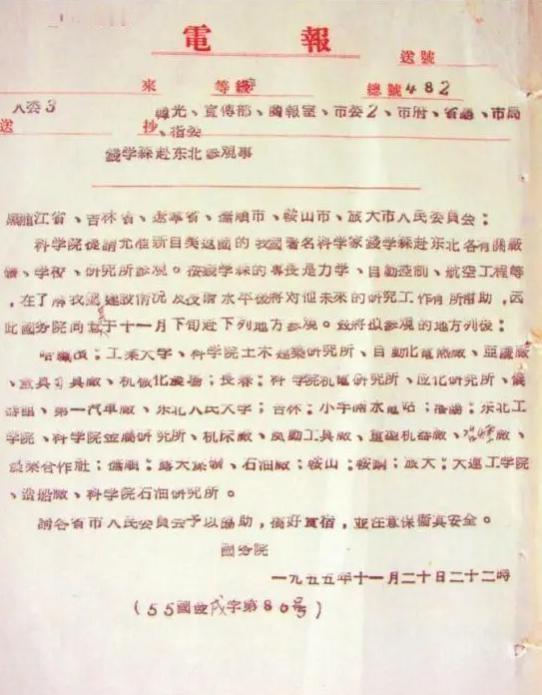 電報
送號
來 等級 總號482
人委3 韓光、宣傳部、簡報室、市委2、市府、省委、市局
送 抄、指委
錢学森赴东北参观事
黑龍江省、吉林省、遼寧省、撫順市、鞍山市、旅大市人民委員会：
科学院從請允准新自美返國的我國著名科学家錢学森赴东北各有關廠
礦、学校、研究所参观。按錢学森的專長是力学、自動控制、航空工程等
，在了解我國建設情况及技術水平後將对他未来的研究工作有所帮助，因
此國务院同意于十一月下旬赴下列地方参观。兹将拟参观的地方列後：
哈爾濱：工業大学、科学院土木建築研究所、自動化電熱廠、亞麻廠
、量具刃具廠、机械化農場；長春：科学院机電研究所、应化研究所、儀
器館、第一汽車廠、东北人民大学；吉林：小丰滿水電站；瀋陽：东北工
学院、科学院金屬研究所、机床廠、風動工具廠、重型机器廠、電纜廠、
農業合作社；撫順：露天煤礦、石油廠；鞍山：鞍鋼；旅大：大連工学院
、造船廠、科学院石油研究所。
請各省市人民委員会予以協助，搞好食宿，並注意保衞其安全。
國务院
一九五五年十一月二十日二十二時
（55國密戌字第80号）